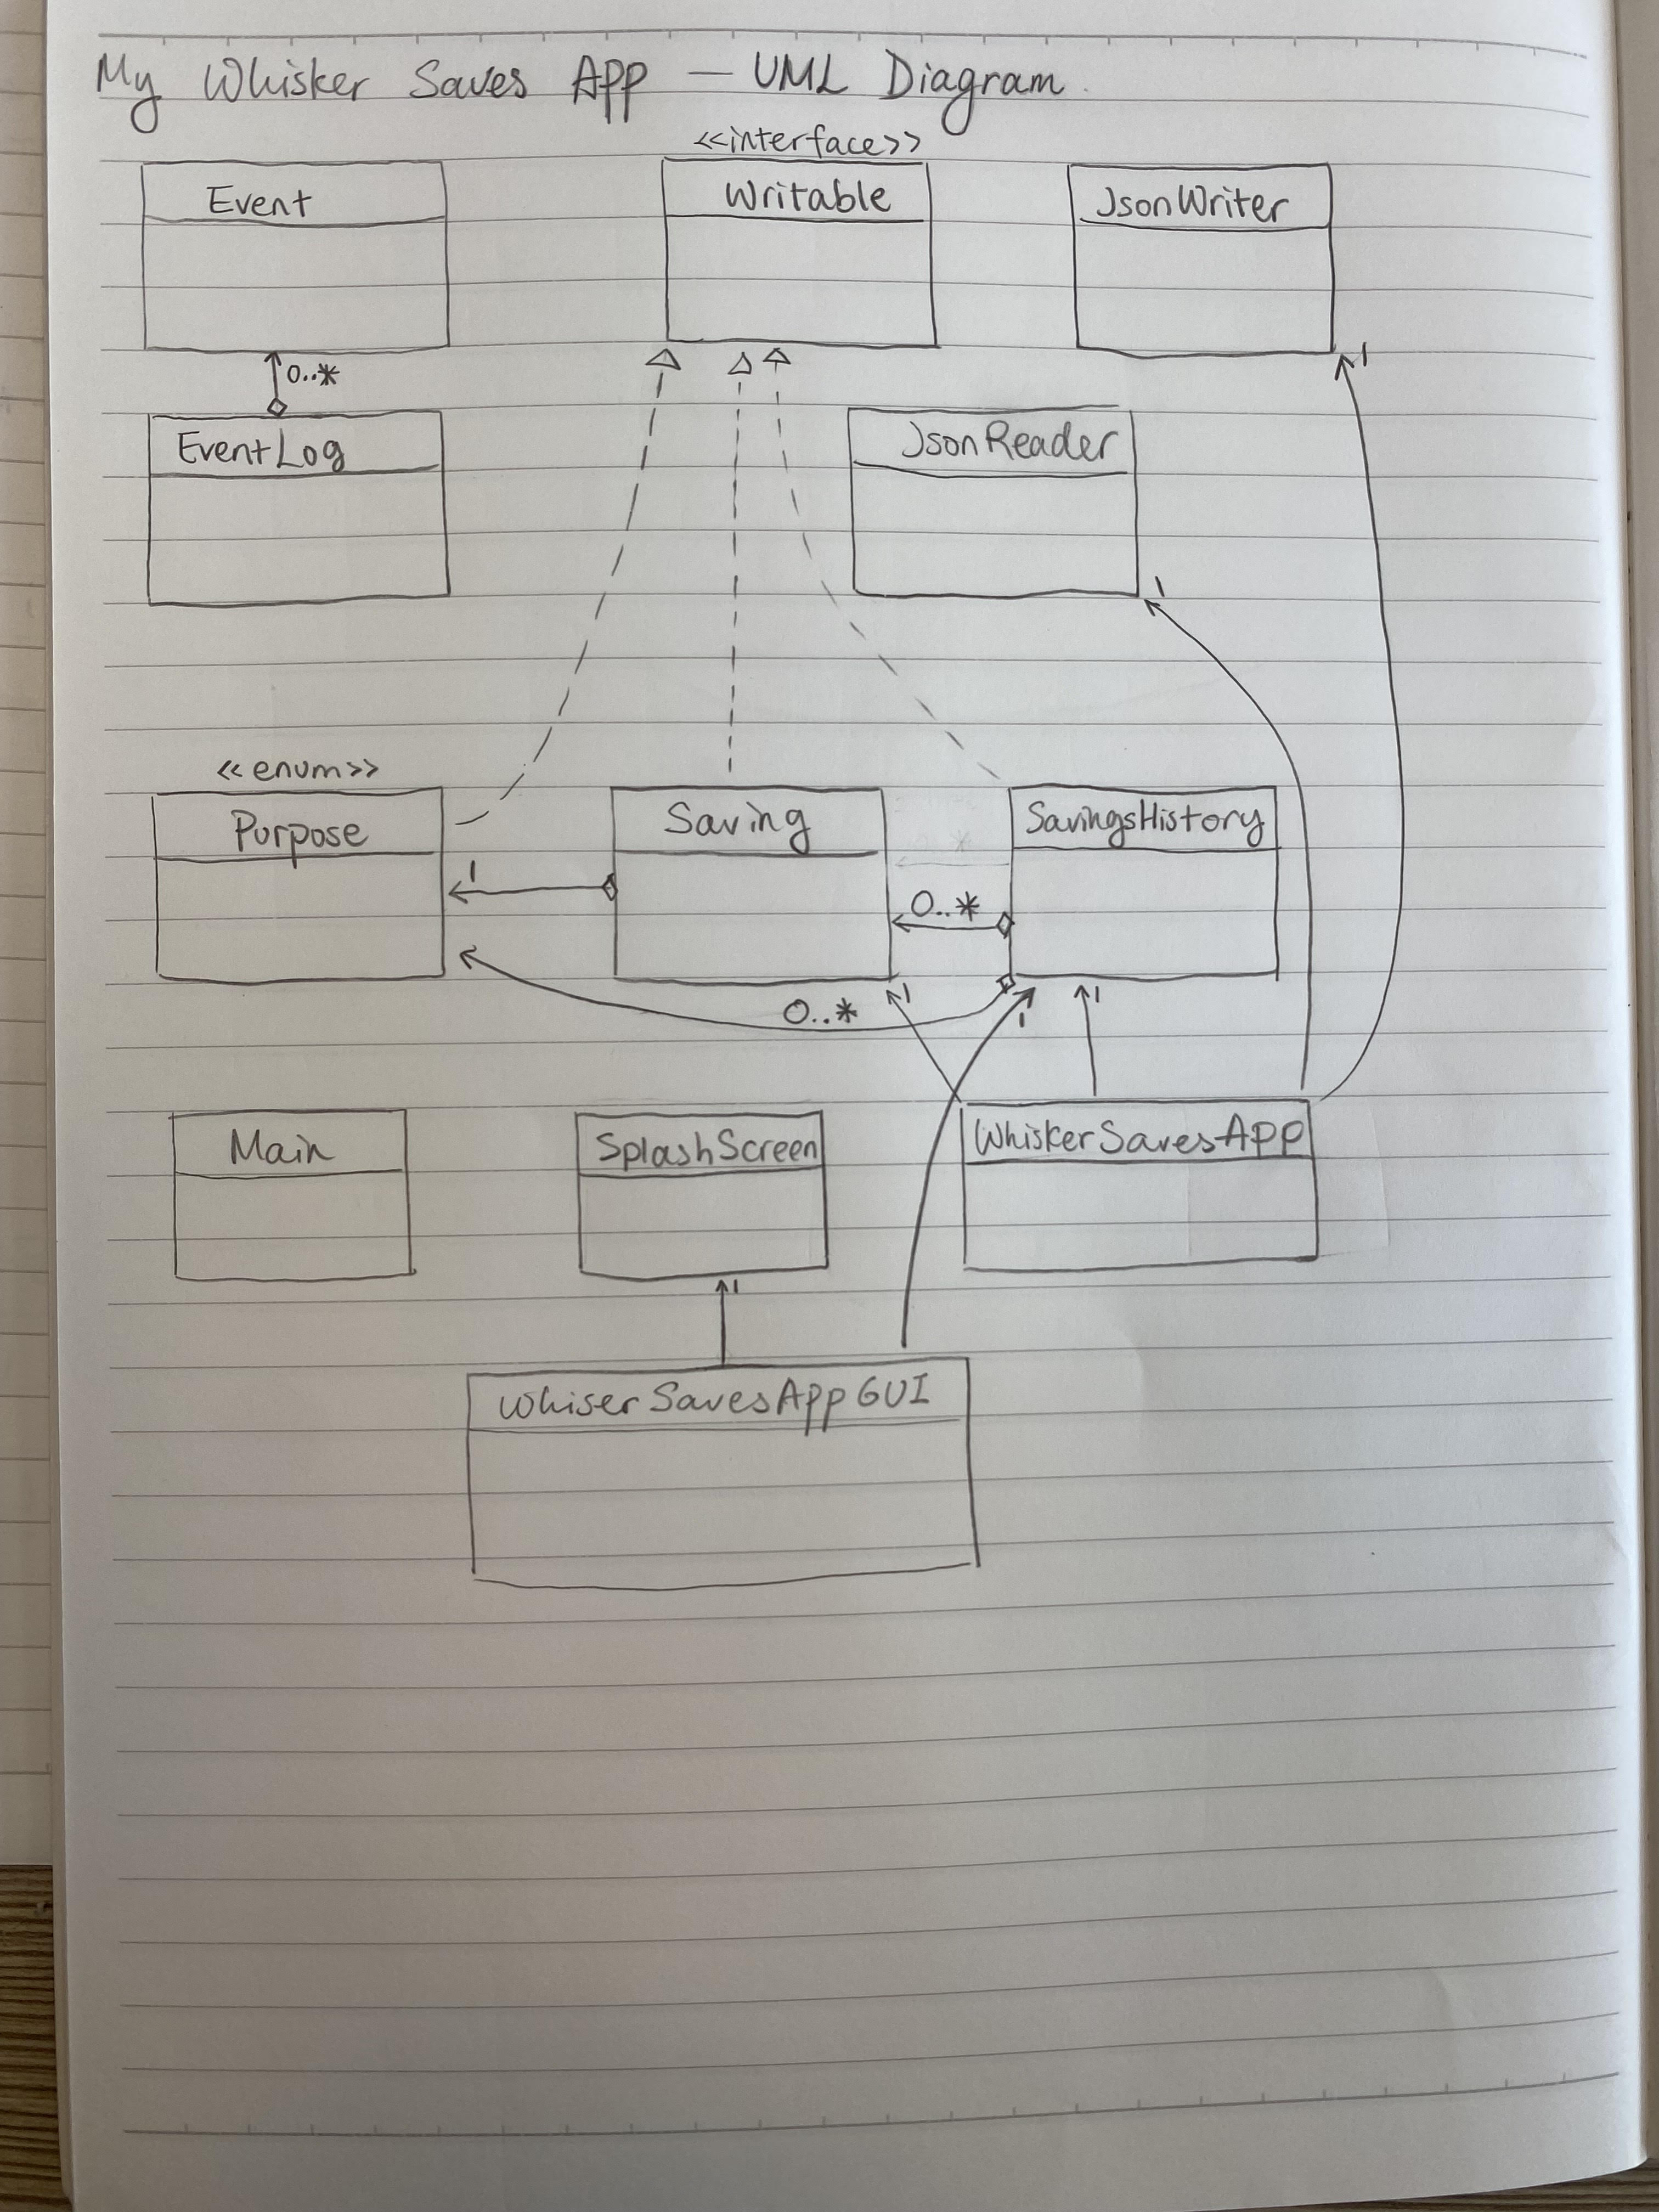 My Whisker Saves App — UML Diagram
<<interface>>
Event
Writable
JsonWriter
0..*
1
EventLog
JsonReader
1
<<enum>>
Purpose
Saving
SavingsHistory
1
0..*
0..*
1
1
1
Main
SplashScreen
WhiskerSavesApp
1
WhiserSavesAppGUI